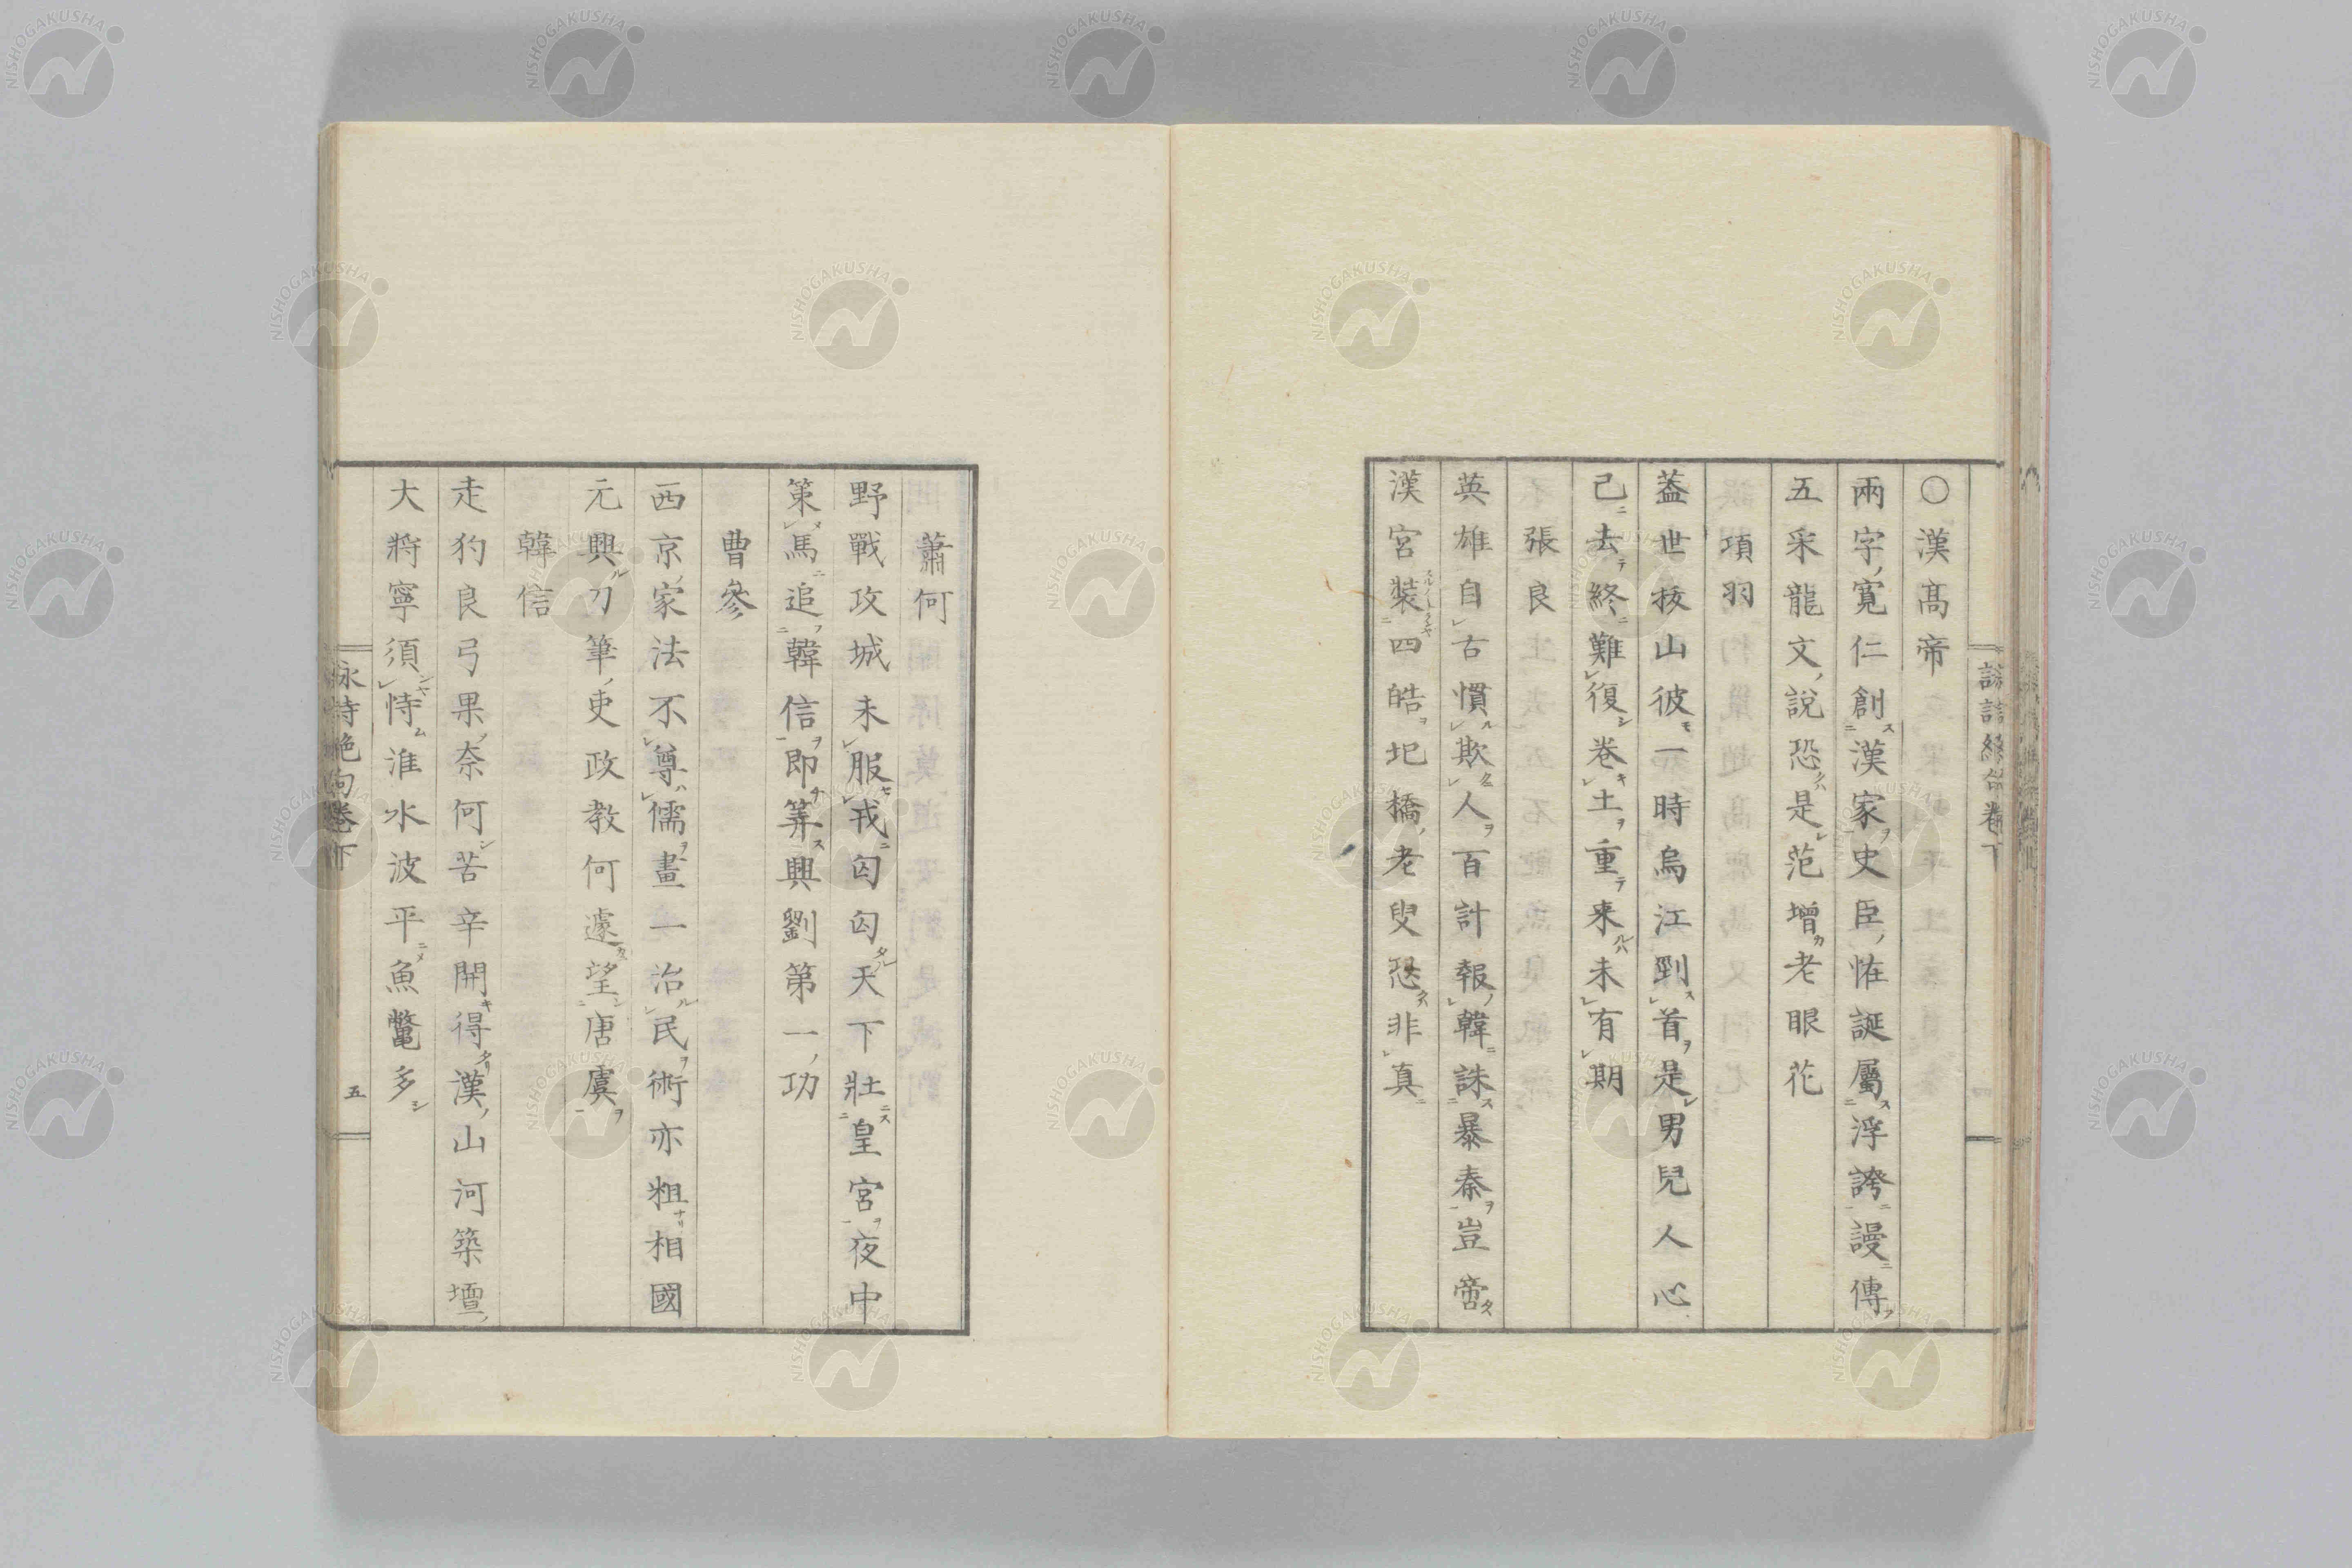 〇漢髙帝
兩字寛仁創漢家史臣恠誕屬浮誇謾傳
五采龍文説恐是范增老眼花
項羽
蓋世拔山彼一時烏江剄首是男兒人心
已去終難復卷土重来未有期
張良
英雄自古慣欺人百計報韓誅暴秦豈啻
漢宮裝四皓圯橋老叟恐非真
蕭何
野戰攻城未服戎囪囪天下壯皇宮夜中
策馬追韓信即筭興劉第一功
曹參
西京家法不尊儒畫一治民術亦粗相國
元興刀筆吏政教何遽望唐虞
韓信
走狗良弓果奈何苦辛開得漢山河築壇
大將寧須恃淮水波平魚鼈多
詠詩絶句卷下
五
NISHOGAKUSHA